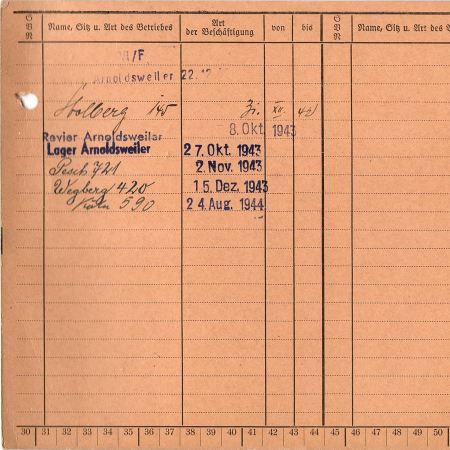 GBN Name, Sitz u. Art des Betriebes Art der Beschäftigung von bis GBN Name, Sitz u. Art des B
VI/F
Arnoldsweiler 22.
Stolberg 145 31. XII 42
8. Okt. 1943
Revier Arnoldsweiler
Lager Arnoldsweiler 27. Okt. 1943
Pesch 721 2. Nov. 1943
Wegberg 420 15. Dez. 1943
Köln 590 24. Aug. 1944
30 31 32 33 34 35 36 37 38 39 40 41 42 43 44 45 46 47 48 49 50